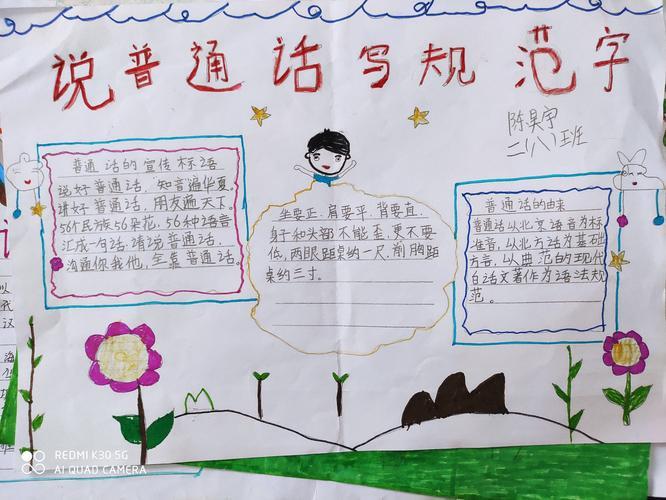 说普通话写规范字
陈昊宇
二(八)班
普通话的宣传标语
说好普通话,知音遍华夏。
讲好普通话,朋友遍天下
56个民族56朵花,56种语言
汇成一句话,请说普通话,
沟通你我他,全靠普通话。
坐要正,肩要平,背要直,
身子和头部不能歪,更不要
低,两眼距桌约一尺,前胸距
桌约三寸。
普通话的由来
普通话以北京语音为标
准音,以北方话为基础
方言,以典范的现代
白话文著作为语法规
范。
以
我
汉
海
REDMI K30 5G
AI QUAD CAMERA